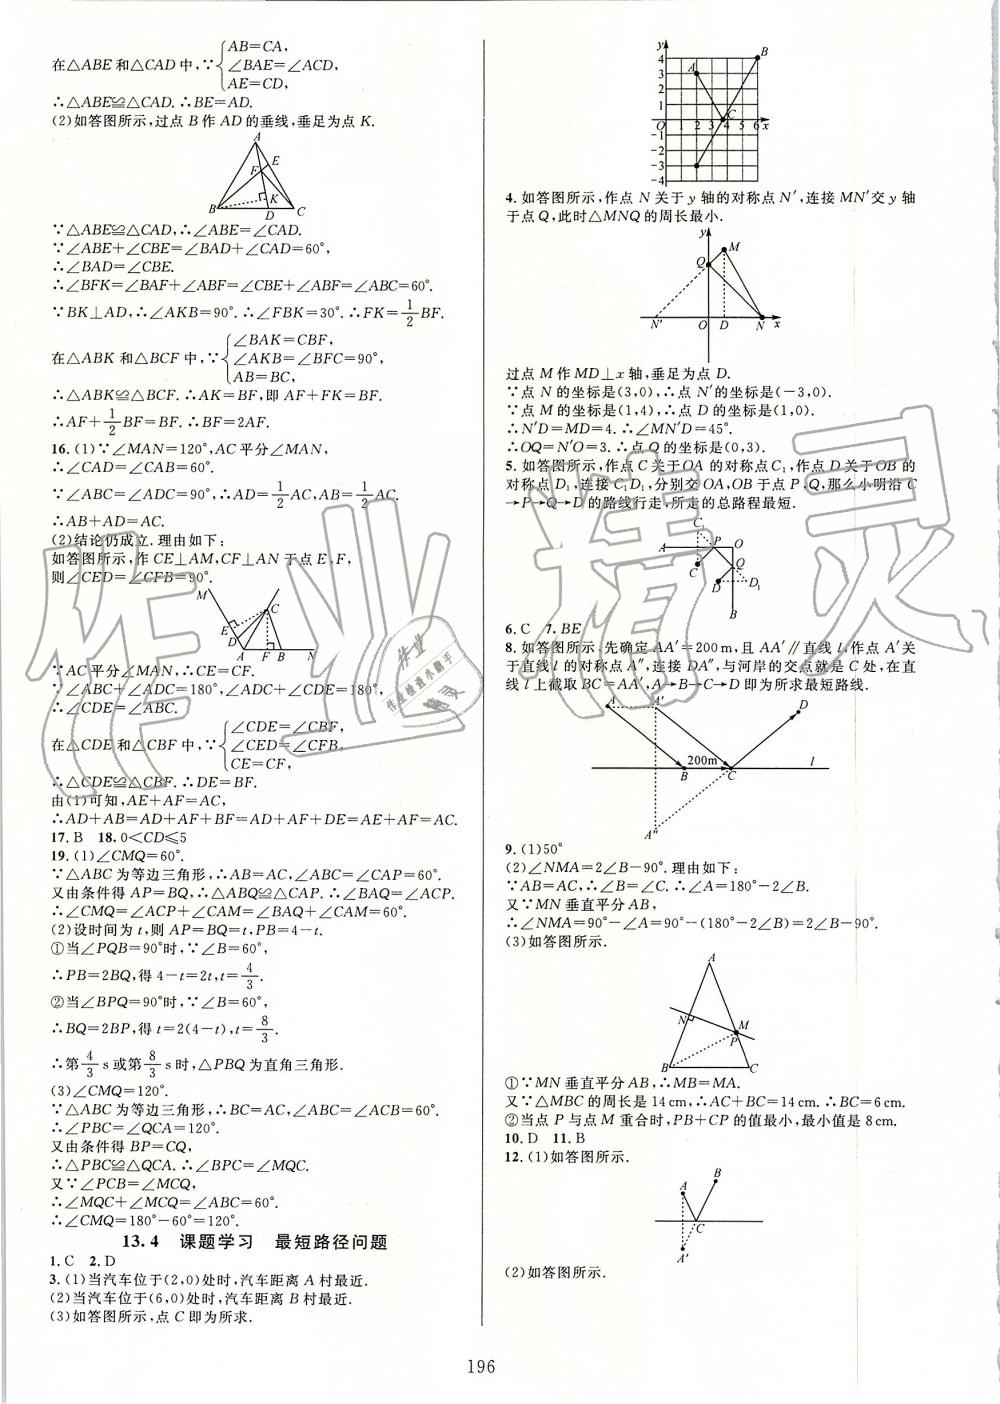 在△ABE和△CAD中,∵{AB=CA,
∠BAE=∠ACD,
AE=CD,
∴△ABE≌△CAD.∴BE=AD.
(2)如答图所示,过点B作AD的垂线,垂足为点K.
A
E
F
K
B
D
C
∵△ABE≌△CAD,∴∠ABE=∠CAD.
∵∠ABE+∠CBE=∠BAD+∠CAD=60°,
∴∠BAD=∠CBE.
∴∠BFK=∠BAF+∠ABF=∠CBE+∠ABF=∠ABC=60°.
∵BK⊥AD,∴∠AKB=90°.∴∠FBK=30°.∴FK=1/2BF.
在△ABK和△BCF中,∵{∠BAK=CBF,
∠AKB=∠BFC=90°,
AB=BC,
∴△ABK≌△BCF.∴AK=BF,即AF+FK=BF.
∴AF+1/2BF=BF.∴BF=2AF.
16.(1)∵∠MAN=120°,AC平分∠MAN,
∴∠CAD=∠CAB=60°.
∵∠ABC=∠ADC=90°,∴AD=1/2AC,AB=1/2AC.
∴AB+AD=AC.
(2)结论仍成立.理由如下:
如答图所示,作CE⊥AM,CF⊥AN于点E,F,
则∠CED=∠CFB=90°.
M
C
E
D
A
F
B
N
∵AC平分∠MAN,∴CE=CF.
∵∠ABC+∠ADC=180°,∠ADC+∠CDE=180°,
∴∠CDE=∠ABC.
在△CDE和△CBF中,∵{∠CDE=∠CBF,
∠CED=∠CFB,
CE=CF,
∴△CDE≌△CBF.∴DE=BF.
由(1)可知,AE+AF=AC,
∴AD+AB=AD+AF+BF=AD+AF+DE=AE+AF=AC.
17.B 18.0<CD≤5
19.(1)∠CMQ=60°.
∵△ABC为等边三角形,∴AB=AC,∠ABC=∠CAP=60°.
又由条件得AP=BQ,∴△ABQ≌△CAP.∴∠BAQ=∠ACP.
∴∠CMQ=∠ACP+∠CAM=∠BAQ+∠CAM=60°.
(2)设时间为t,则AP=BQ=t,PB=4-t.
①当∠PQB=90°时,∵∠B=60°,
∴PB=2BQ,得4-t=2t,t=4/3.
②当∠BPQ=90°时,∵∠B=60°,
∴BQ=2BP,得t=2(4-t),t=8/3.
∴第4/3s或第8/3s时,△PBQ为直角三角形.
(3)∠CMQ=120°.
∵△ABC为等边三角形,∴BC=AC,∠ABC=∠CAB=60°.
∴∠PBC=∠QCA=120°.
又由条件得BP=CQ,
∴△PBC≌△QCA.∴∠BPC=∠MQC.
又∵∠PCB=∠MCQ,
∴∠MQC+∠MCQ=∠ABC=60°.
∴∠CMQ=180°-60°=120°.
13.4 课题学习 最短路径问题
1.C 2.D
3.(1)当汽车位于(2,0)处时,汽车距离A村最近.
(2)当汽车位于(6,0)处时,汽车距离B村最近.
(3)如答图所示,点C即为所求.
y
B
4
A
3
2
1
C
O
1 2 3 4 5 6 x
-1
-2
-3
-4
4.如答图所示,作点N关于y轴的对称点N′,连接MN′交y轴
于点Q,此时△MNQ的周长最小.
y
M
Q
N′
O
D
N
x
过点M作MD⊥x轴,垂足为点D.
∵点N的坐标是(3,0),∴点N′的坐标是(-3,0).
∵点M的坐标是(1,4),∴点D的坐标是(1,0).
∴N′D=MD=4.∴∠MN′D=45°.
∴OQ=N′O=3.∴点Q的坐标是(0,3).
5.如答图所示,作点C关于OA的对称点C₁,作点D关于OB的
对称点D₁,连接C₁D₁,分别交OA,OB于点P,Q,那么小明沿C
→P→Q→D的路线行走,所走的总路程最短.
C₁
A
P
O
C
Q
D
D₁
B
6.C 7.BE
8.如答图所示,先确定AA′=200m,且AA′∥直线l,作点A′关
于直线l的对称点A″,连接DA″,与河岸的交点就是C处,在直
线l上截取BC=AA′,A→B→C→D即为所求最短路线.
A
A′
D
200m
B
C
l
A″
9.(1)50°
(2)∠NMA=2∠B-90°.理由如下:
∵AB=AC,∴∠B=∠C.∴∠A=180°-2∠B.
又∵MN垂直平分AB,
∴∠NMA=90°-∠A=90°-(180°-2∠B)=2∠B-90°.
(3)如答图所示.
A
N
M
P
B
C
①∵MN垂直平分AB,∴MB=MA.
又∵△MBC的周长是14cm,∴AC+BC=14cm.∴BC=6cm.
②当点P与点M重合时,PB+CP的值最小,最小值是8cm.
10.D 11.B
12.(1)如答图所示.
B
A
C
A′
(2)如答图所示.
196
作业精灵
作业
作业检查小助手
精灵